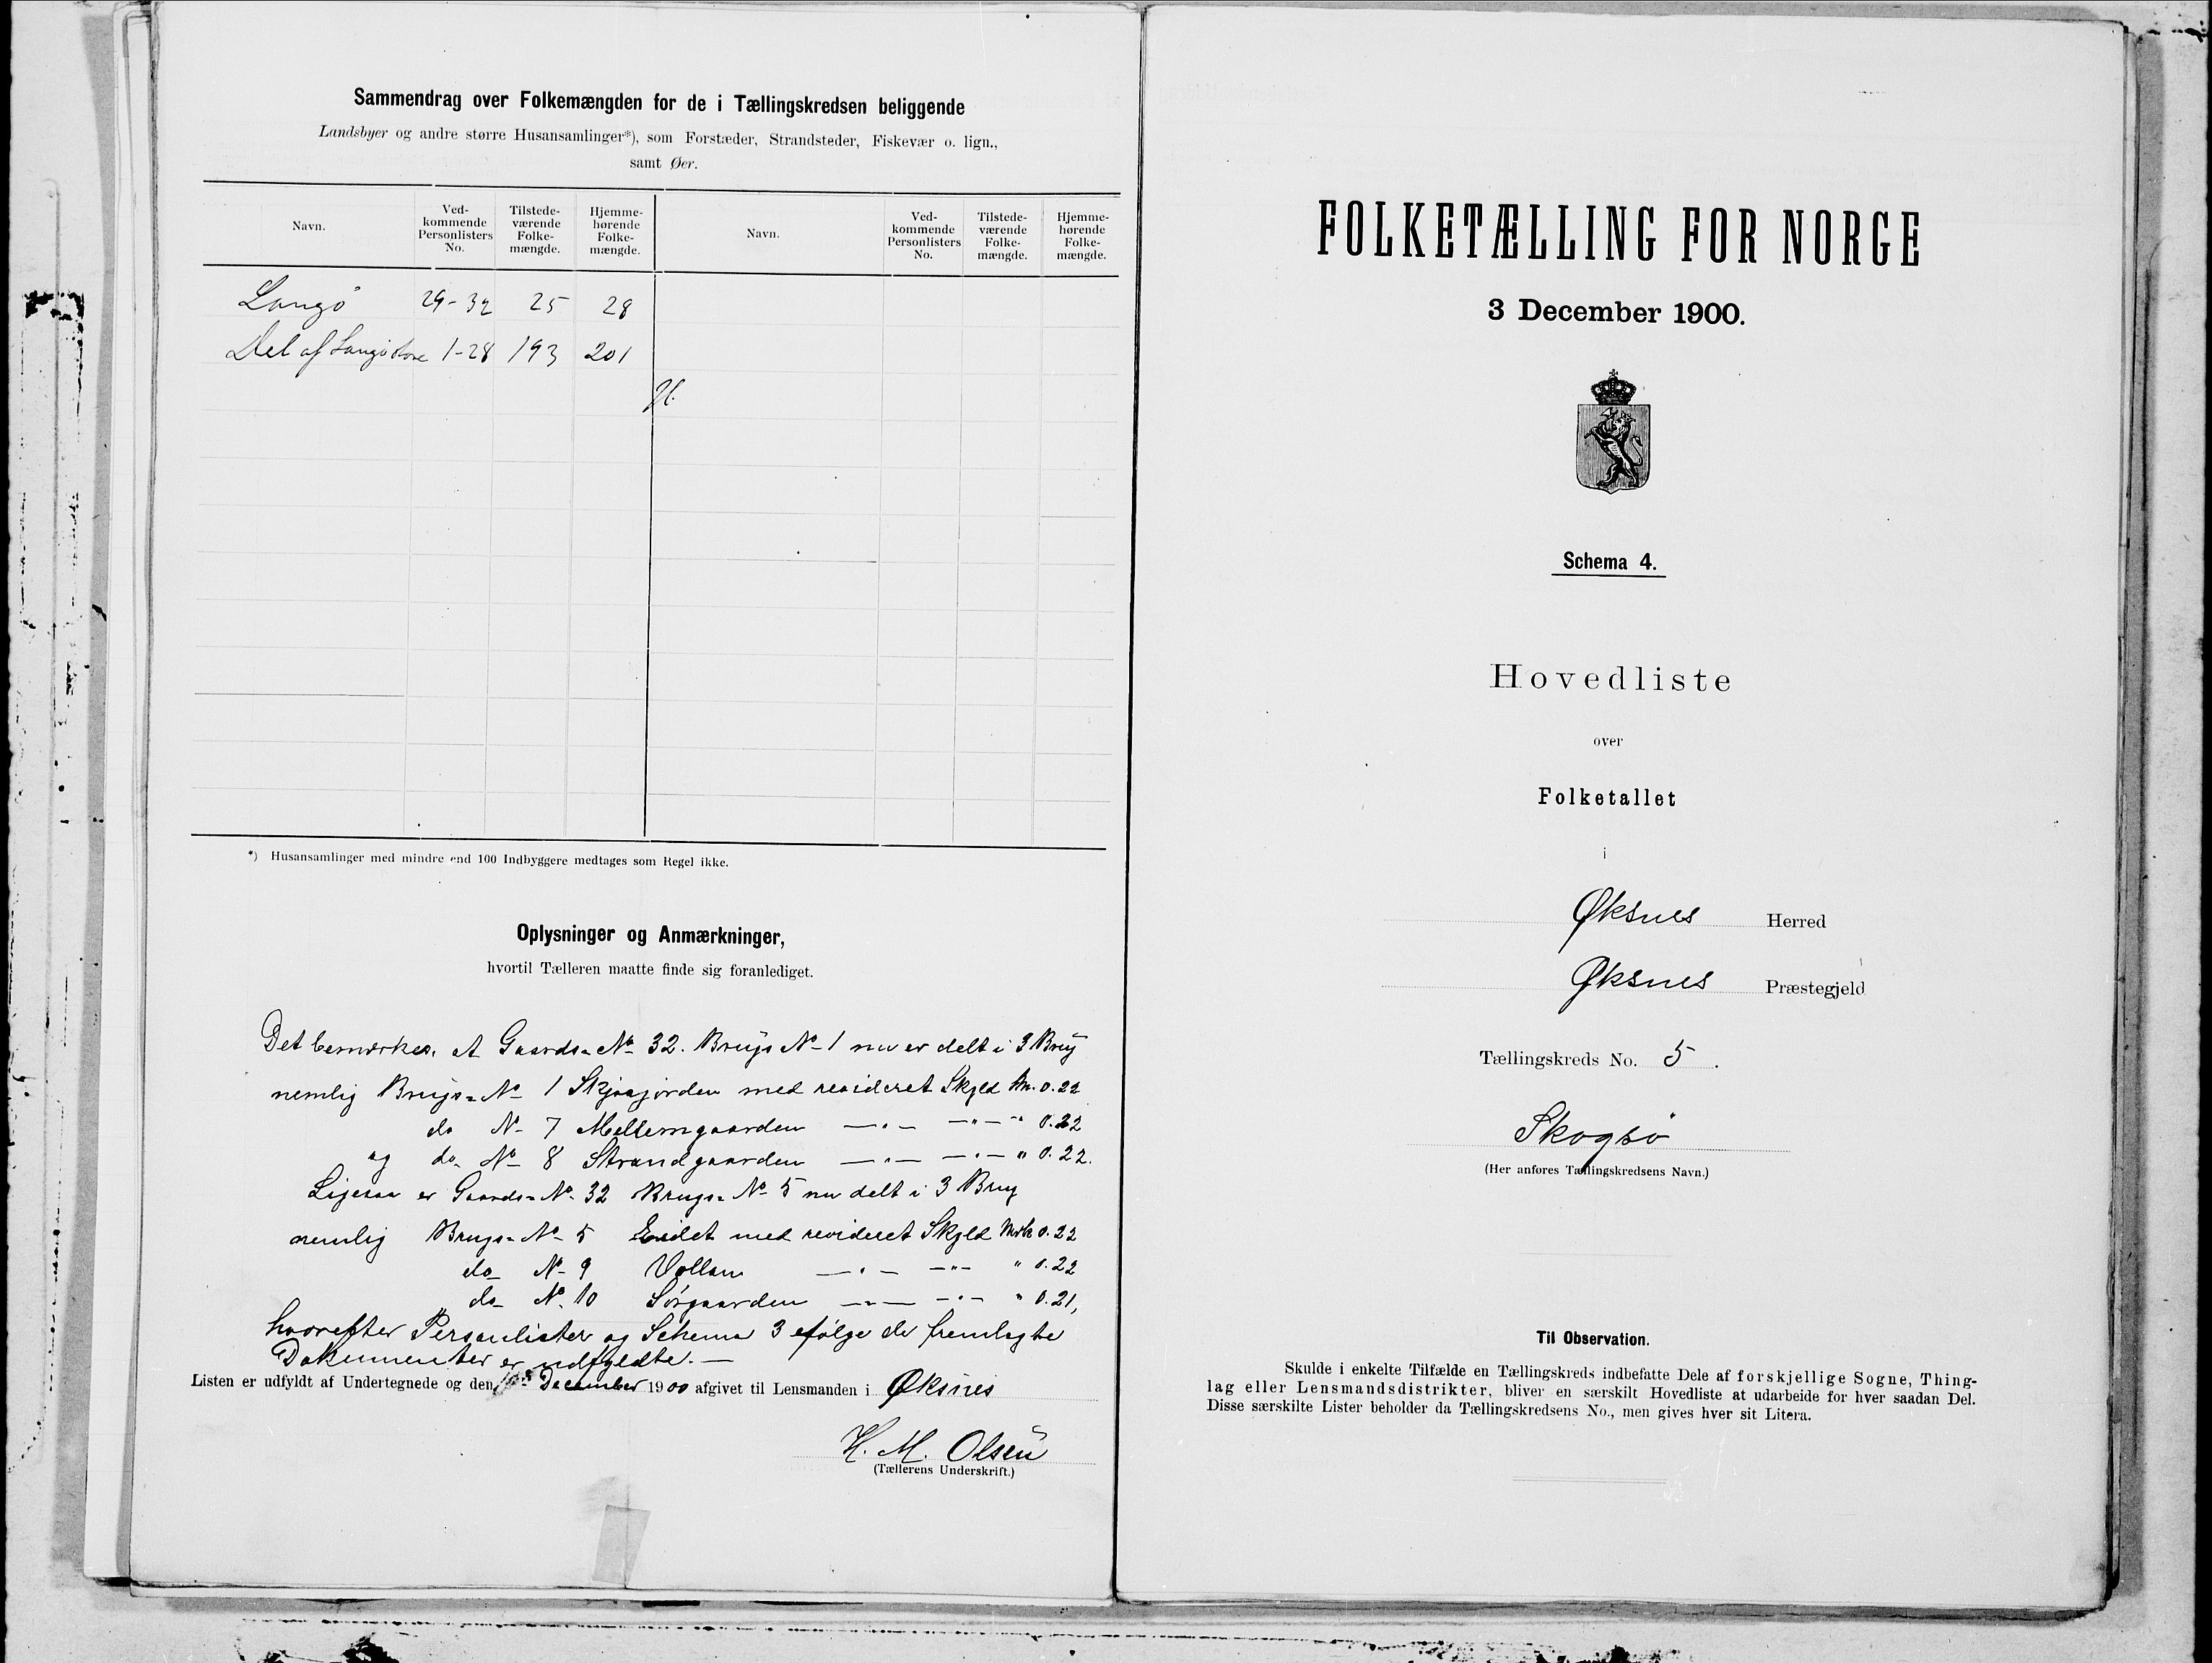 Sammendrag over Folkemængden for de i Tællingskredsen beliggende
Landsbyer og andre større Husansamlinger*), som Forstæder, Strandsteder, Fiskevær o. lign.,
samt Øer.
Navn. Ved-kommende Personlisters No. Tilstede-værende Folke-mængde. Hjemme-hørende Folke-mængde. Navn. Ved-kommende Personlisters No. Tilstede-værende Folke-mængde. Hjemme-hørende Folke-mængde.
Langø 29-32 25 28
Del af 1-28 193 201
*) Husansamlinger med mindre end 100 Indbyggere medtages som Regel ikke.
Oplysninger og Anmærkninger,
hvortil Tælleren maatte finde sig foranlediget.
Det bemærkes, at Gaards-No 32. Brugs No 1 nu er delt i 3 Brug
nemlig Brugs-No 1 med revideret Skyld 0.22
do No 7 Mellemgaarden —"— —"— " 0.22
og do. No 8 Strandgaarden —"— —"— " 0.22.
Ligesaa er Gaards-No. 32 Brugs-No 5 nu delt i 3 Brug
nemlig Brugs-No 5 Eidet med revideret Skyld Mark 0.22
do No 9 Vollan —"— —"— " 0.22
do No. 10 Sørgaarden —"— —"— " 0.21,
hvorefter Personlister og Schema 3 efølge de fremlagte
Dokumenter er udfyldte. —
Listen er udfyldt af Undertegnede og den December 1900 afgivet til Lensmanden i Øksnes
H. M. Olsen
(Tællerens Underskrift.)
FOLKETÆLLING FOR NORGE
3 December 1900.
Schema 4.
Hovedliste
over
Folketallet
i
Øksnes Herred
Øksnes Præstegjeld
Tællingskreds No. 5.
Skogsø
(Her anføres Tællingskredsens Navn.)
Til Observation.
Skulde i enkelte Tilfælde en Tællingskreds indbefatte Dele af forskjellige Sogne, Thing-
lag eller Lensmandsdistrikter, bliver en særskilt Hovedliste at udarbeide for hver saadan Del.
Disse særskilte Lister beholder da Tællingskredsens No., men gives hver sit Litera.